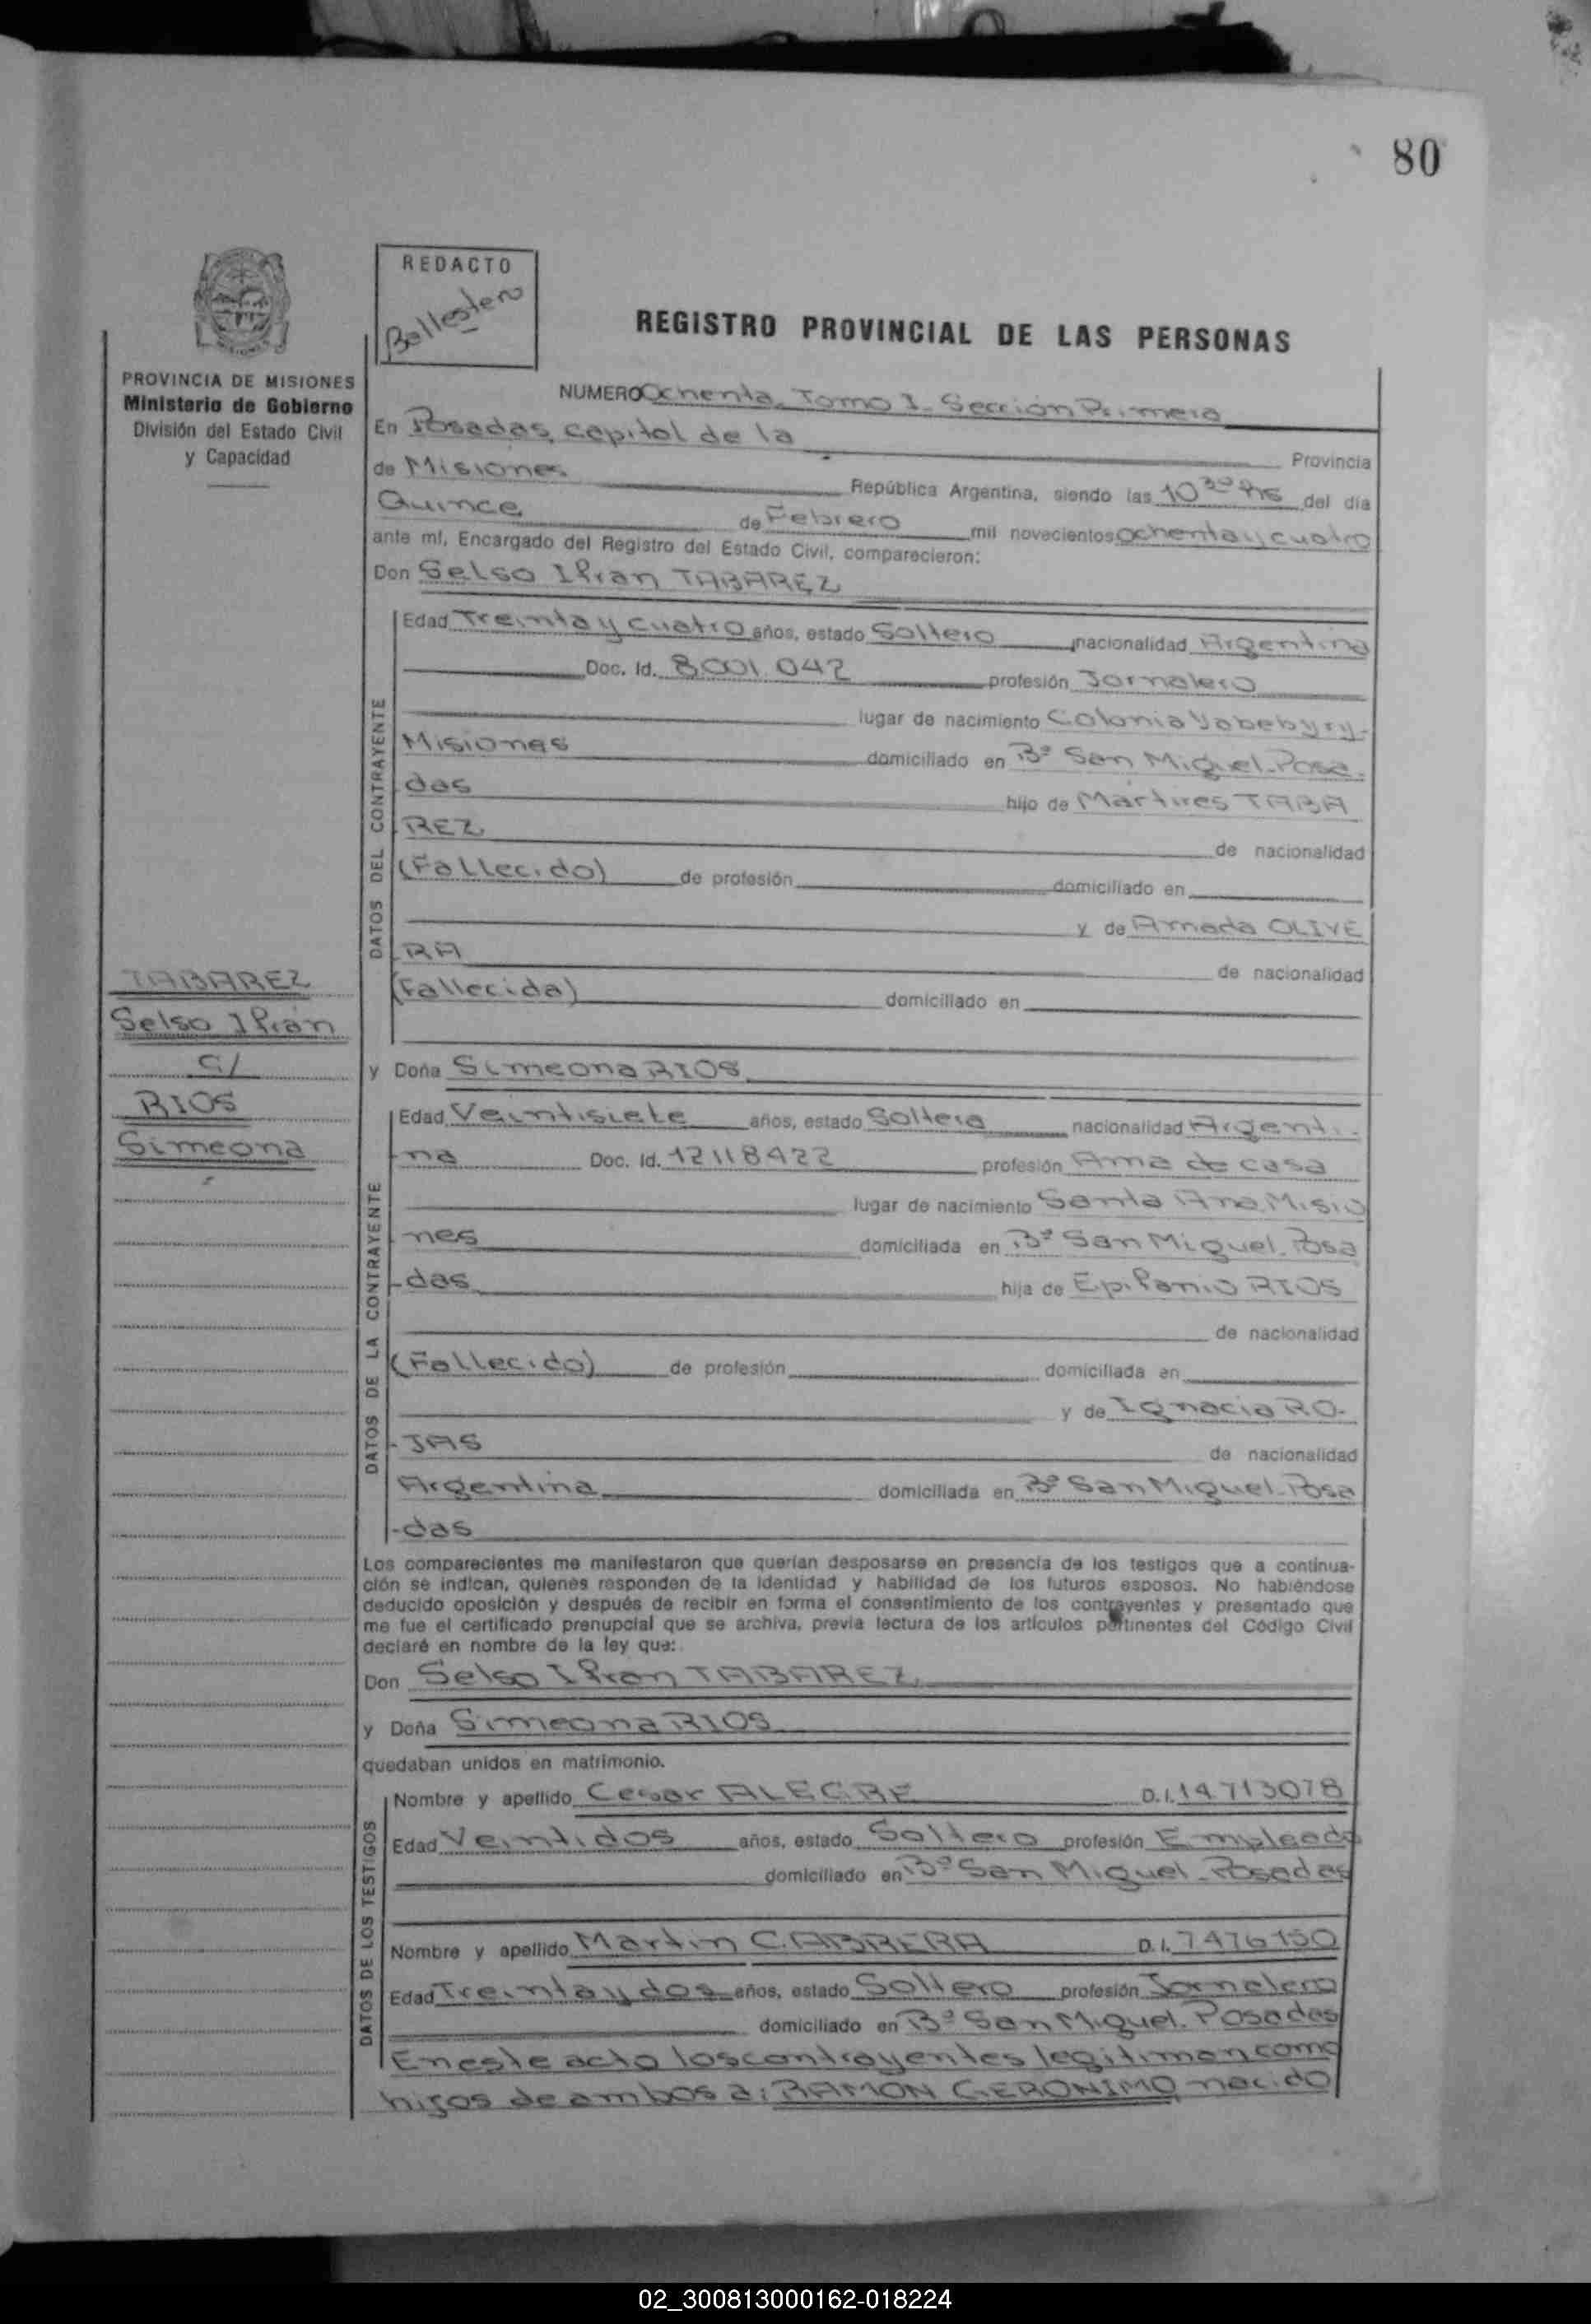 80
REDACTO
Ballestero
REGISTRO PROVINCIAL DE LAS PERSONAS
PROVINCIA DE MISIONES
Ministerio de Gobierno
División del Estado Civil
y Capacidad
NUMERO Ochenta. Tomo I. Sección Primera
En Posadas, capital de la Provincia
de Misiones República Argentina, siendo las 10³⁰ hs del día
Quince de Febrero mil novecientos ochenta y cuatro
ante mí, Encargado del Registro del Estado Civil, comparecieron:
Don Selso Ifran TABAREZ
DATOS DEL CONTRAYENTE
Edad Treinta y cuatro años, estado Soltero nacionalidad Argentina
Doc. Id. 8.001.042 profesión Jornalero
lugar de nacimiento Colonia Yabebyry-
Misiones domiciliado en Bº San Miguel-Posa-
das hijo de Martires TABA
REZ de nacionalidad
(Fallecido) de profesión domiciliado en
y de Amada OLIVE
RA de nacionalidad
(Fallecida) domiciliado en
TABAREZ
Selso Ifran
c/
RIOS
Simeona
y Doña Simeona RIOS
DATOS DE LA CONTRAYENTE
Edad Veintisiete años, estado Soltera nacionalidad Argenti-
na Doc. Id. 12118422 profesión Ama de casa
lugar de nacimiento Santa Ana Misio
nes domiciliada en Bº San Miguel. Posa
-das hija de Epifanio RIOS
de nacionalidad
(Fallecido) de profesión domiciliada en
y de Ignacia RO-
-JAS de nacionalidad
Argentina domiciliada en Bº San Miguel-Posa
-das
Los comparecientes me manifestaron que querían desposarse en presencia de los testigos que a continua-
ción se indican, quienes responden de la identidad y habilidad de los futuros esposos. No habiéndose
deducido oposición y después de recibir en forma el consentimiento de los contrayentes y presentado que
me fue el certificado prenupcial que se archiva, previa lectura de los artículos pertinentes del Código Civil
declaré en nombre de la ley que:
Don Selso Ifran TABAREZ
y Doña Simeona RIOS
quedaban unidos en matrimonio.
DATOS DE LOS TESTIGOS
Nombre y apellido Cesar ALEGRE D.I. 14.713078
Edad Veintidos años, estado Soltero profesión Empleado
domiciliado en Bº San Miguel-Posadas
Nombre y apellido Martin CABRERA D.I. 7476150
Edad Treinta y dos años, estado Soltero profesión Jornalero
domiciliado en Bº San Miguel. Posadas
En este acto los contrayentes legitiman como
hijos de ambos a: RAMON GERONIMO nacido
02_300813000162-018224